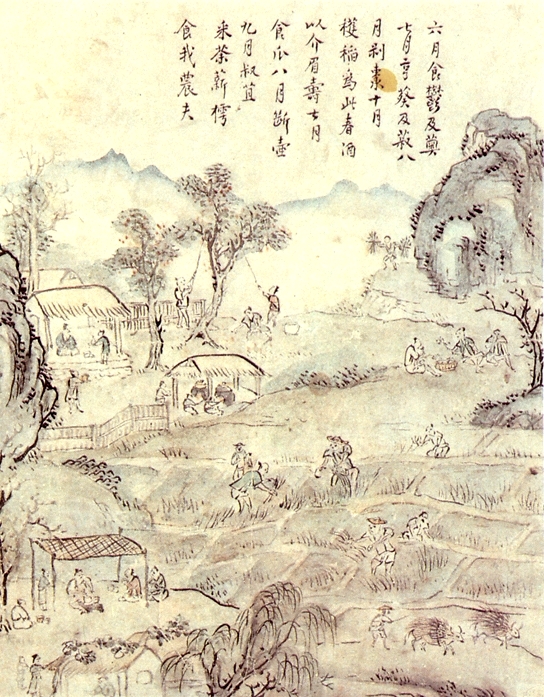 六月食鬱及薁
七月亨葵及菽八
月剥棗十月
穫稻為此春酒
以介眉壽七月
食瓜八月斷壺
九月叔苴
采荼薪樗
食我農夫